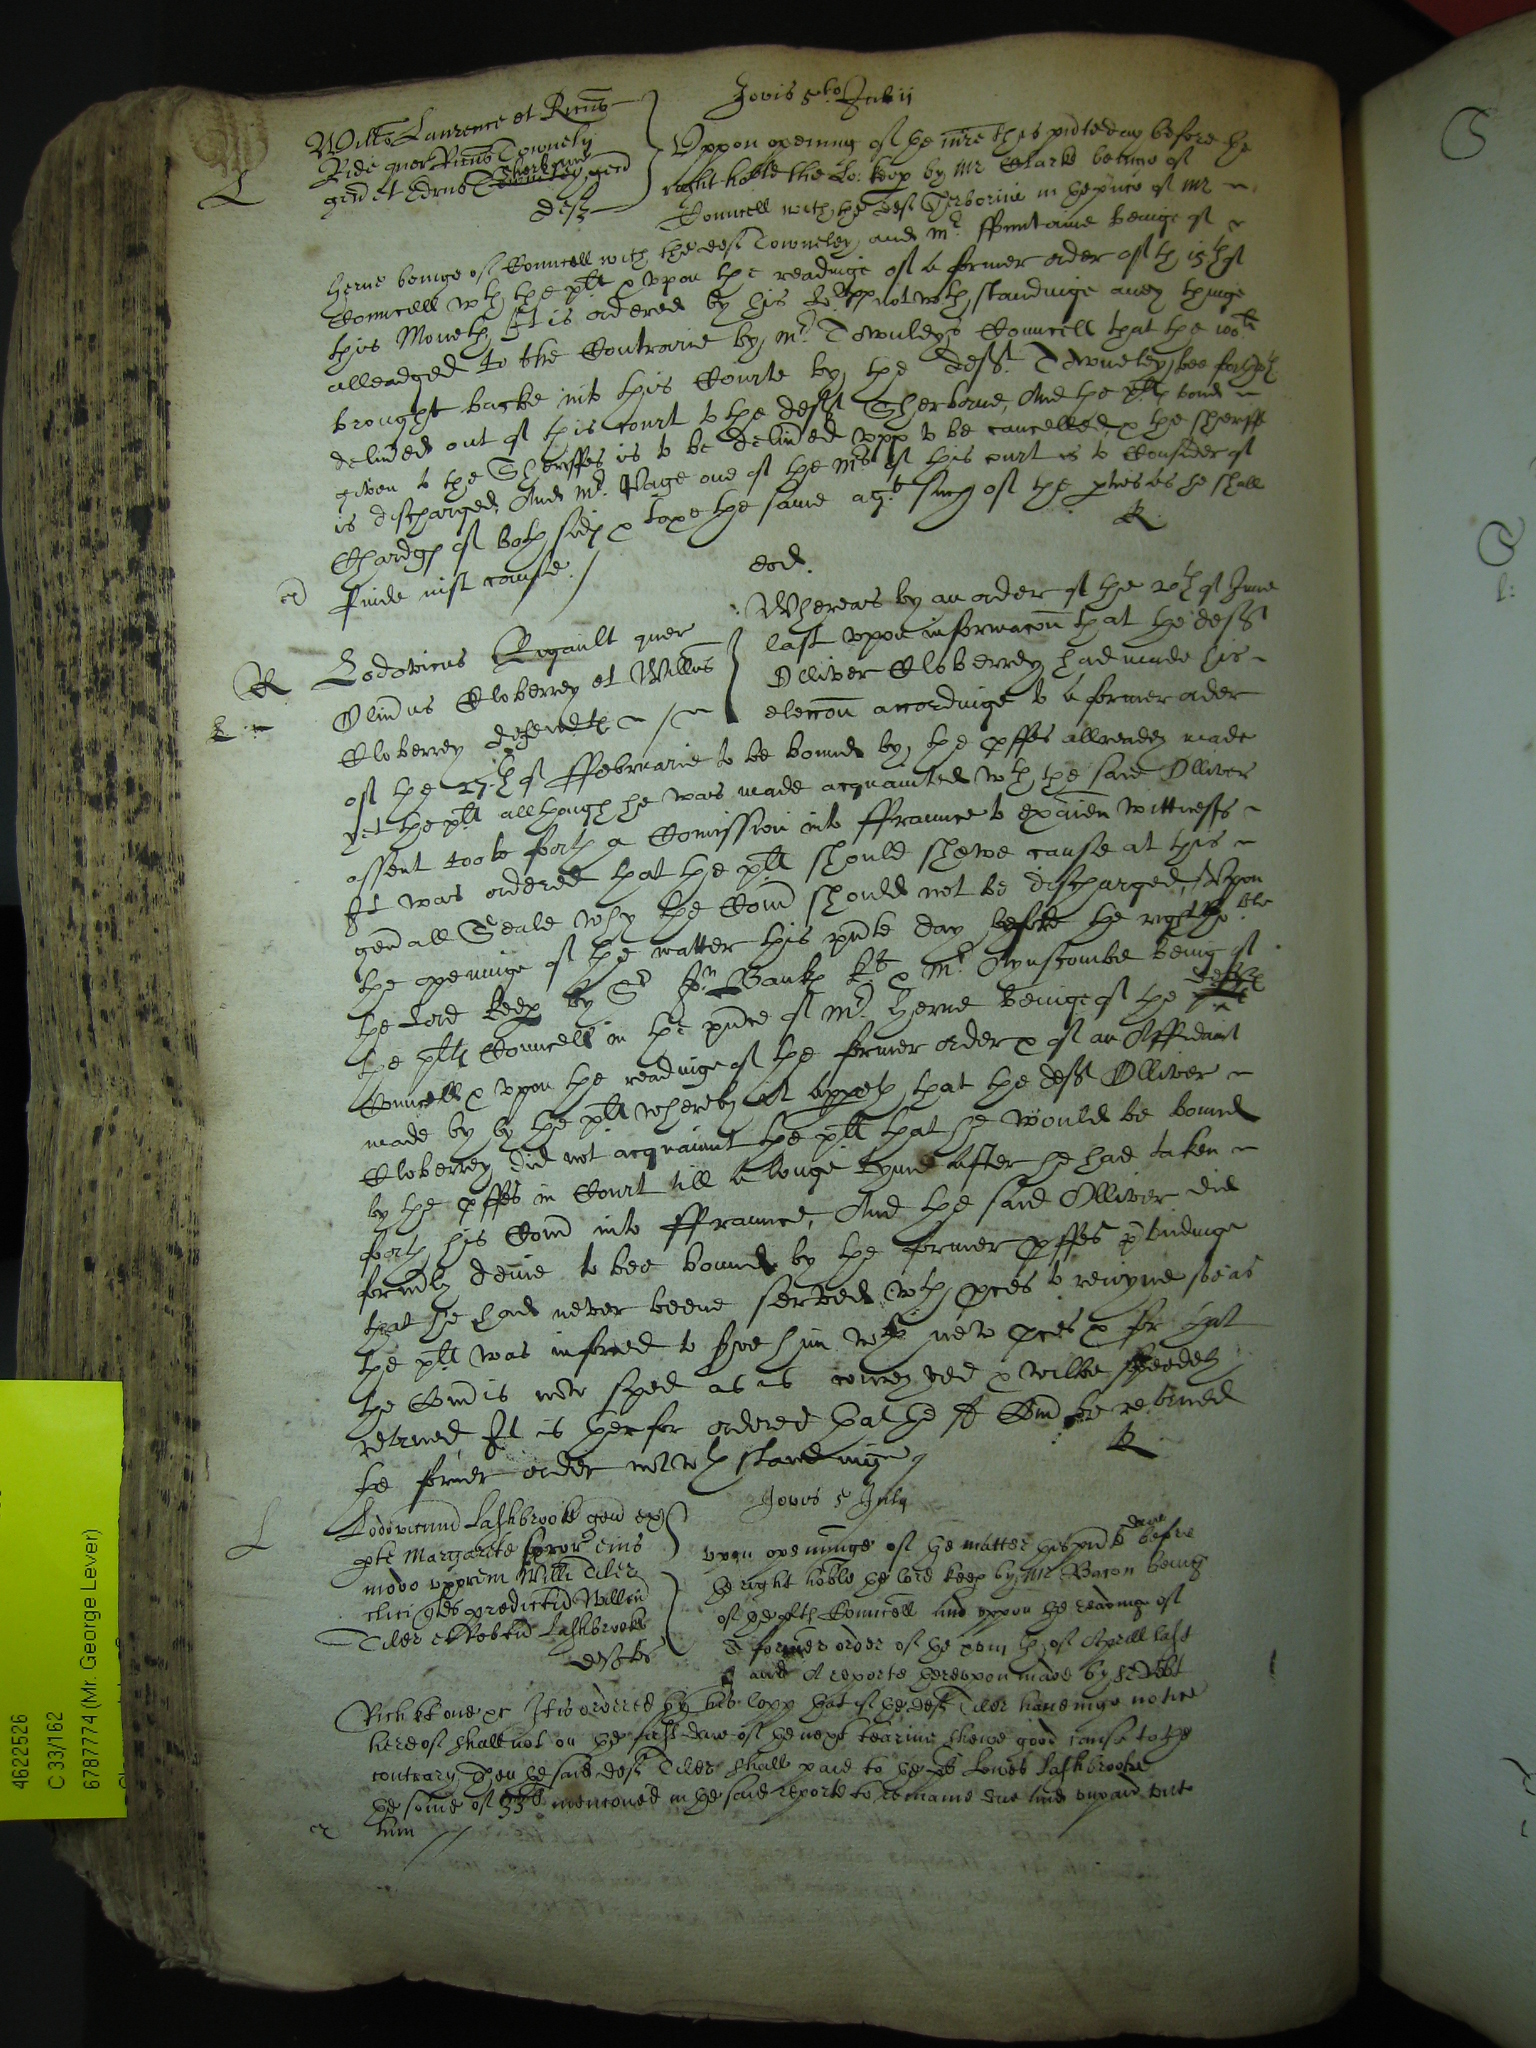 Jovis 5to Julii
L
Willus Laurence et Ricus
Ride quer Ricus Towneley
gen et Edrus Towneley Sherborne gen
defts
Uppon openinge of the mre this pnte day before the
right hoble the Lo: keep by Mr Clarke beinge of
Councell with the deft Serborne in the pnce of Mr
Herne beinge of Councell with the deft Towneley, and Mr. ffountaine beinge of
Councell wth the plt & upon the readinge of a former order of th 15th of
this Moneth, It is ordered by his Lopp notwthstandinge aney thinge
alleadged to the Contrarie by Mr Townleys Councell that the 100li
brought backe into this Courte by the deft. Towneley, bee forthwth
delived out of this court to the deft Sherborne, And the plts bond
given to the Sheriffes is to be delived upp to be cancelled, & the sheriffe
is discharged, And Mr. Page one of the Mrs of this court is to Consider of
Chardgs of both sids & taxe the same agt such of the pties as he shall
finde just cause. /
R
eod.
R
Lodovicus Rigault quer
Olivus Cloberrey et Willus
Cloberrey defendts
Whereas by an order of the 20th of June
last upon informacon that the deft
Olliver Cloberrey had made his
eleccon accordinge to a former order
of the 27th of ffebruarie to be bound by the pffes allreadey made
yet the plt allthough he was made acquainted wth the said Olliver
assent tooke forth a Comission into ffraunce to exaien wittnesses
It was ordered that the plt should shewe cause at this
genall Seale why the Comn should not be discharged, Upon
the openinge of the matter this pnte day before the right hoble
the Lord keep by Sr Jn Banks kt & Mr. Aynscombe being of
the plts Councell in the pnce of Mr. Herne beinge of the defts
Councell & upon the readinge of the former order & of an Affidavit
made by by the plt whereby it appeth that the deft Olliver
Cloberrey did not acquaint the plt that he would be bound
by the pffes in Court till a longe tyme after he had taken
forth his Comn into ffraunce, And the said Olliver did
formerly denie to bee bound by the former pffes ptendinge
that he had never beene served wth pces to rejoyne soe as
the plt was inforced to serve him wth new pces & for that
the Comn is now sped as is conceyved & wilbe speedely
retorned, It is therfor ordered that the sd Comn be retorned
the former order notwthstandinge
R
Jovis 5 July
L
Lodovicum Lashbrooke gen et
Margarete uxor eius
modo Willi Tiler
predictid Willm
Tiler et Robtid Lashbrooke
defts
upon openinge of the matter this pnte daie before
the right hoble the lord keep by Mr Bacon being
of the plts Councell and uppon the readinge of
a former order of the xviijth of Aprill last
and A reporte thereupon made by Sr Robt
Rich kt one &c It is ordered by his lopp that if the deft Tiler haveinge notice
hereof shall not on the first daie of the next tearme shewe good cause to the
contrary then the said deft Tiler shall paie to the plt Lewes Lashbrooke
the some of 33li mencioned in the said reporte to remaine due and unpaid unto
him //
4622526
C 33/162
6787774 (Mr. George Lever)